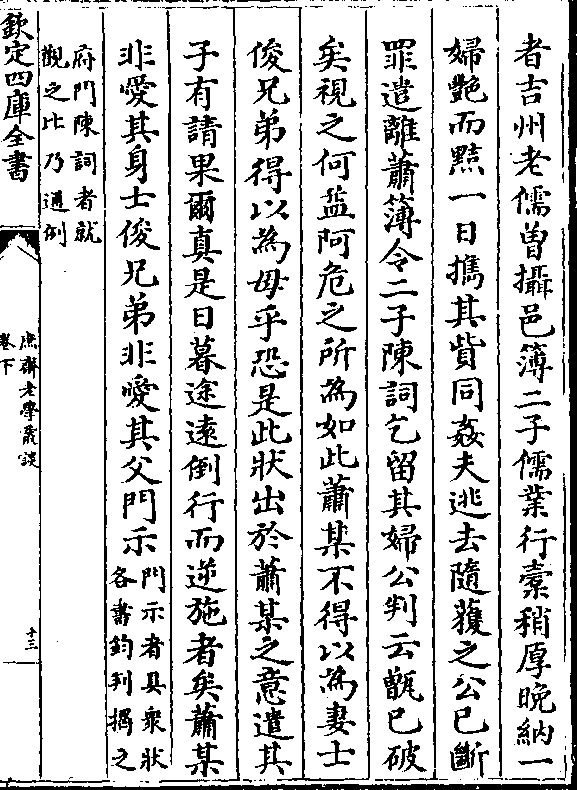 者吉州老儒曽攝邑簿二子儒業行橐稍厚晩納一
婦艶而黠一日攜其貲同姦夫逃去隨獲之公已斷
罪遣離蕭簿令二子陳詞乞留其婦公判云甑已破
矣視之何益阿危之所為如此蕭某不得以為妻士
俊兄弟得以為母乎恐是此狀出於蕭某之意遣其
子有請果爾真是日暮途逺倒行而逆施者矣蕭某
非愛其身士俊兄弟非愛其父門示
門示者具衆狀
各書鈞判揭之
府門陳詞者就
觀之比乃通例
欽定四庫全書
庶齋老學叢談
卷下
十三